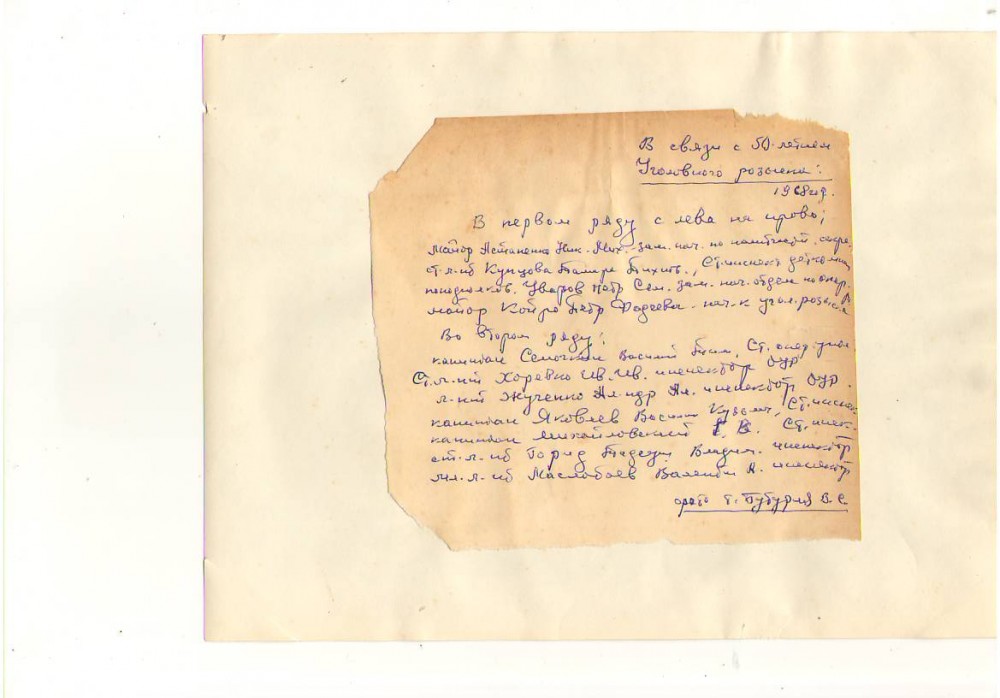 В связи с 50-летием
Уголовного розыска:
1968 год.
В первом ряду с лева на право;
майор Астапенко Ник. Мих. зам. нач. по политчасти,
ст. л-нт Купцова Тамара Тихон., Ст. инспект детской
Уваров Петр Сем. зам. нач. отдела по опер.
майор Койро Петр Фадеевич нач-к угол. розыск
Во втором ряду:
капитан Семочкин Василий Ст. опер упол
Ст. л-нт Хоревко Ив. Ив. инспектор ОУР
л-нт Жученко Ал-ндр Ал. инспектор ОУР.
капитан Яковлев Василий Кузьм, Ст. инспек
капитан Михайловский Г. В. Ст. инсп.
ст. л-нт Владим. инспектор
мл. л-нт Маслобоев Валентин А. инспектор
фото т. Бутурля В. С